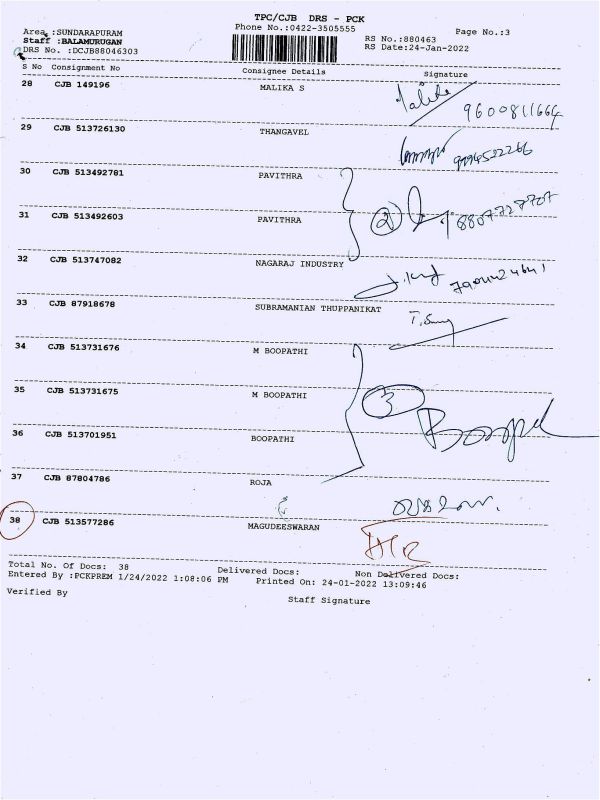 TPC/CJB DRS - PCK
Phone No.:0422-3505555 Page No.:3
Area :SUNDARAPURAM RS No.:880463
Staff :BALAMURUGAN RS Date:24-Jan-2022
DRS No. :DCJB88046303
S No Consignment No Consignee Details Signature
28 CJB 149196 MALIKA S
9600811664
29 CJB 513726130 THANGAVEL
30 CJB 513492781 PAVITHRA
2
31 CJB 513492603 PAVITHRA
32 CJB 513747082 NAGARAJ INDUSTRY
33 CJB 87918678 SUBRAMANIAN THUPPANIKAT
34 CJB 513731676 M BOOPATHI
35 CJB 513731675 M BOOPATHI
3
36 CJB 513701951 BOOPATHI
37 CJB 87804786 ROJA
38 CJB 513577286 MAGUDEESWARAN
Total No. Of Docs: 38 Delivered Docs: Non Delivered Docs:
Entered By :PCKPREM 1/24/2022 1:08:06 PM Printed On: 24-01-2022 13:09:46
Verified By Staff Signature